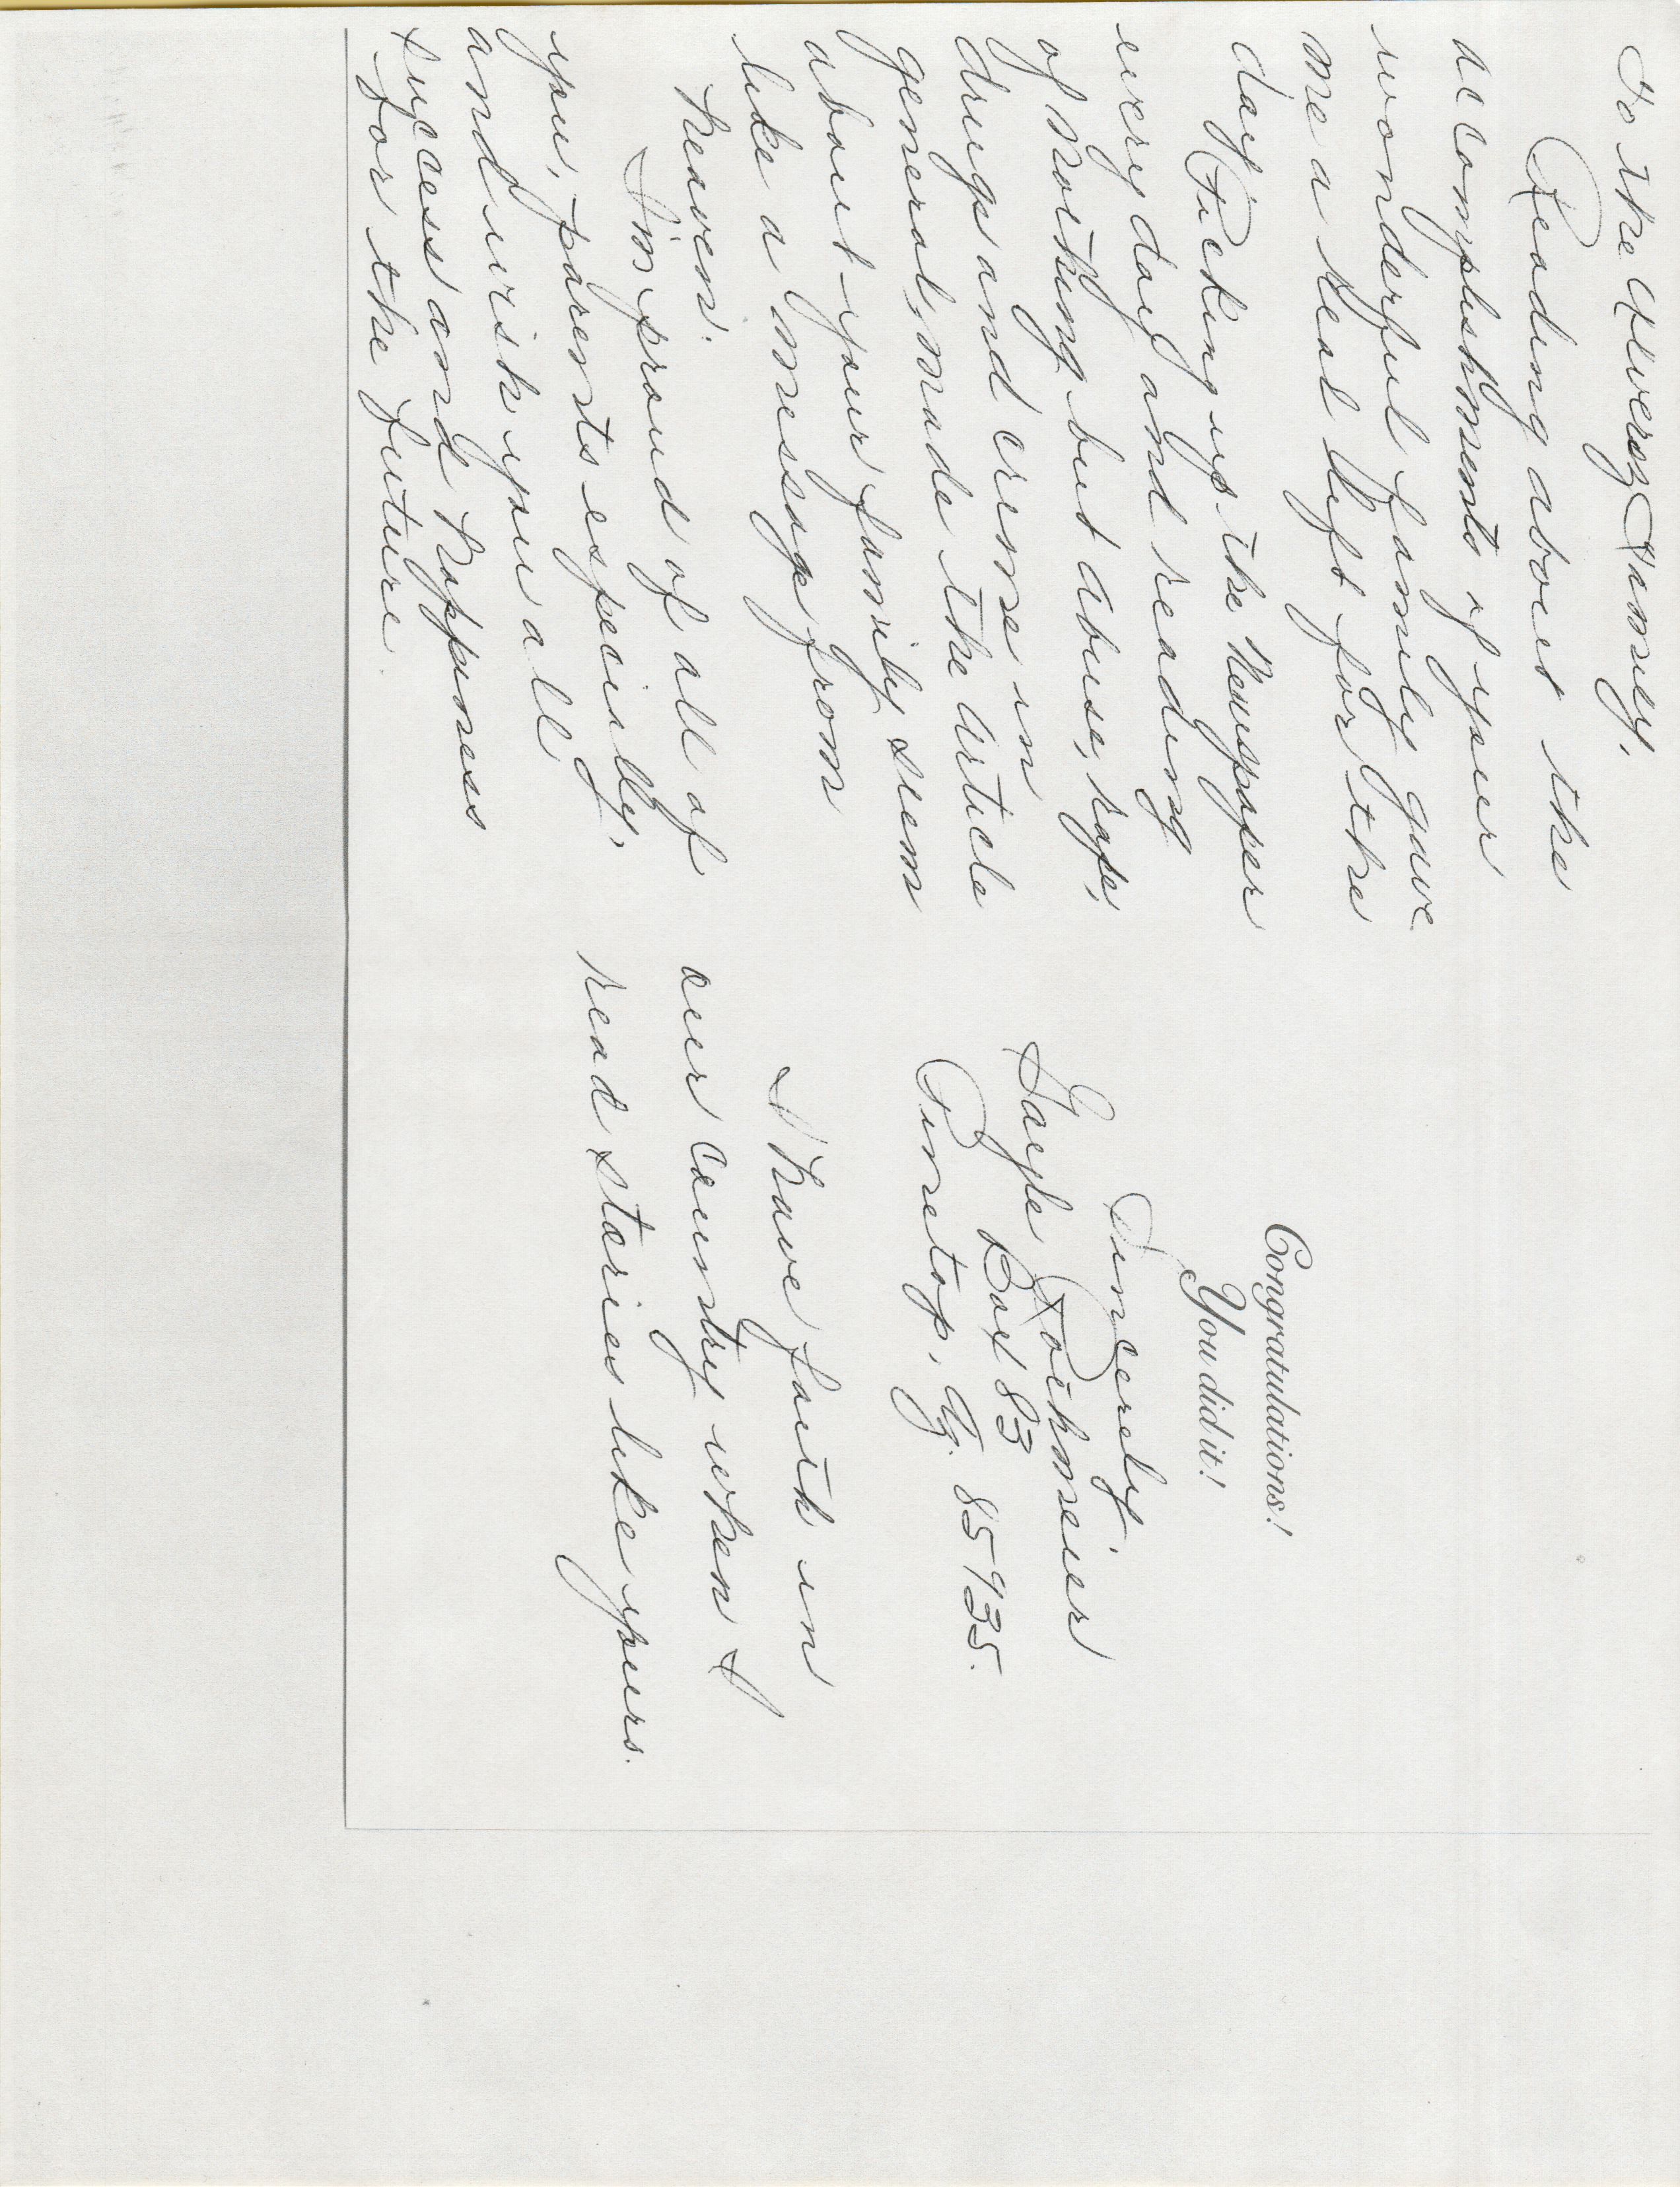 To the Alveroz Family,
Reading about the
accomplishments of your
wonderful family gave
me a real lift for the
day.
Picking up the Newspaper
every day and reading
of nothing but abuse, rape,
drugs and crime in
general, made the article
about your family seem
like a message from
heaven.
I'm proud of all of
you, parents especially,
and wish you all
success and happiness
for the future
Congratulations!
You did it!
Sincerely,
Gayle Rothmeier
Box 83
Pinetop, Az. 85935.
I have faith in
our country when I
read stories like yours.